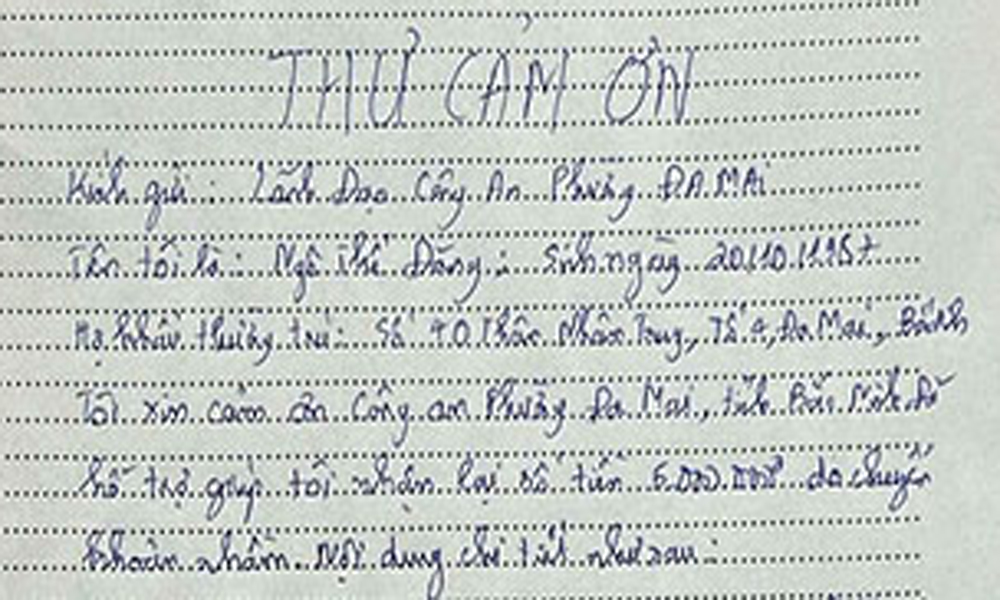 THƯ CẢM ƠN
Kính gửi: Lãnh Đạo Công An Phường ĐA MAI
Tên tôi là: Ngô Thế Dũng; Sinh ngày 20.10.1957
Hộ khẩu thường trú: Số 40 Thân Nhân Trung, Tổ 4, Đa Mai, Bắc
Tôi xin cảm ơn Công an Phường Đa Mai, tỉnh Bắc Ninh đã
hỗ trợ giúp tôi nhận lại số tiền 5.000.000đ do chuyển
khoản nhầm. Nội dung chi tiết như sau: